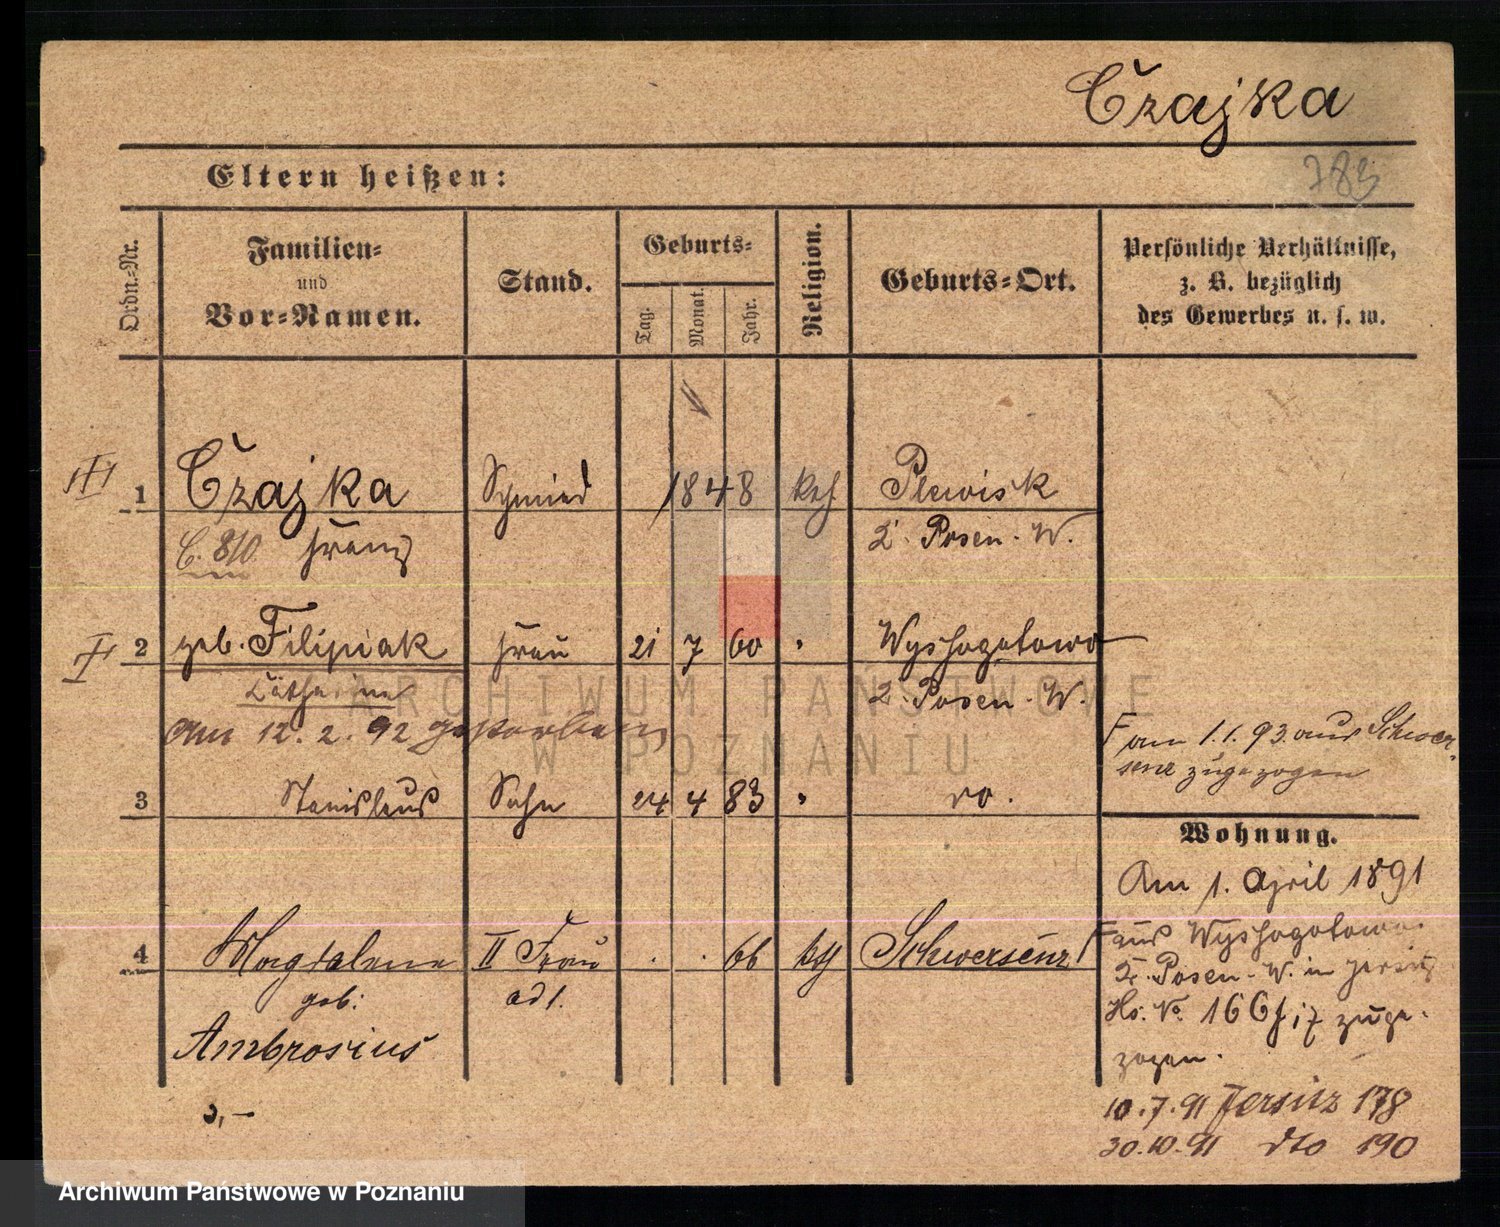 Czajka
783
Eltern heißen:
Ordn.-Nr.
Familien-
und
Vor-Namen.
Stand.
Geburts-
Tag.
Monat.
Jahr.
Religion.
Geburts-Ort.
Persönliche Verhältnisse,
z. B. bezüglich
des Gewerbes u. s. w.
1 Czajka Schmied 1848 kth Plewisk
C. 810. Franz Kr. Posen. W.
2 geb. Filipiak Frau 21 7 60 " Wyssogotowo
Catharina Kr. Posen. W.
Am 12. 2. 92 gestorben
3 Stanislaus Sohn 24 4 83 " do.
F am 1.1.93. aus Schwer-
senz zugezogen
Wohnung.
4 Magdalene II Frau . . 66 kth Schwersenz
geb: ad 1.
Ambrosius
Am 1. April 1891
F aus Wyssogotowo
Kr. Posen-W. in Jersitz
Hs. No. 166 zuge-
zogen.
10.7.91 Jersitz 178
30.10.91 dto 190
3,-
ARCHIWUM PAŃSTWOWE
W POZNANIU
Archiwum Państwowe w Poznaniu